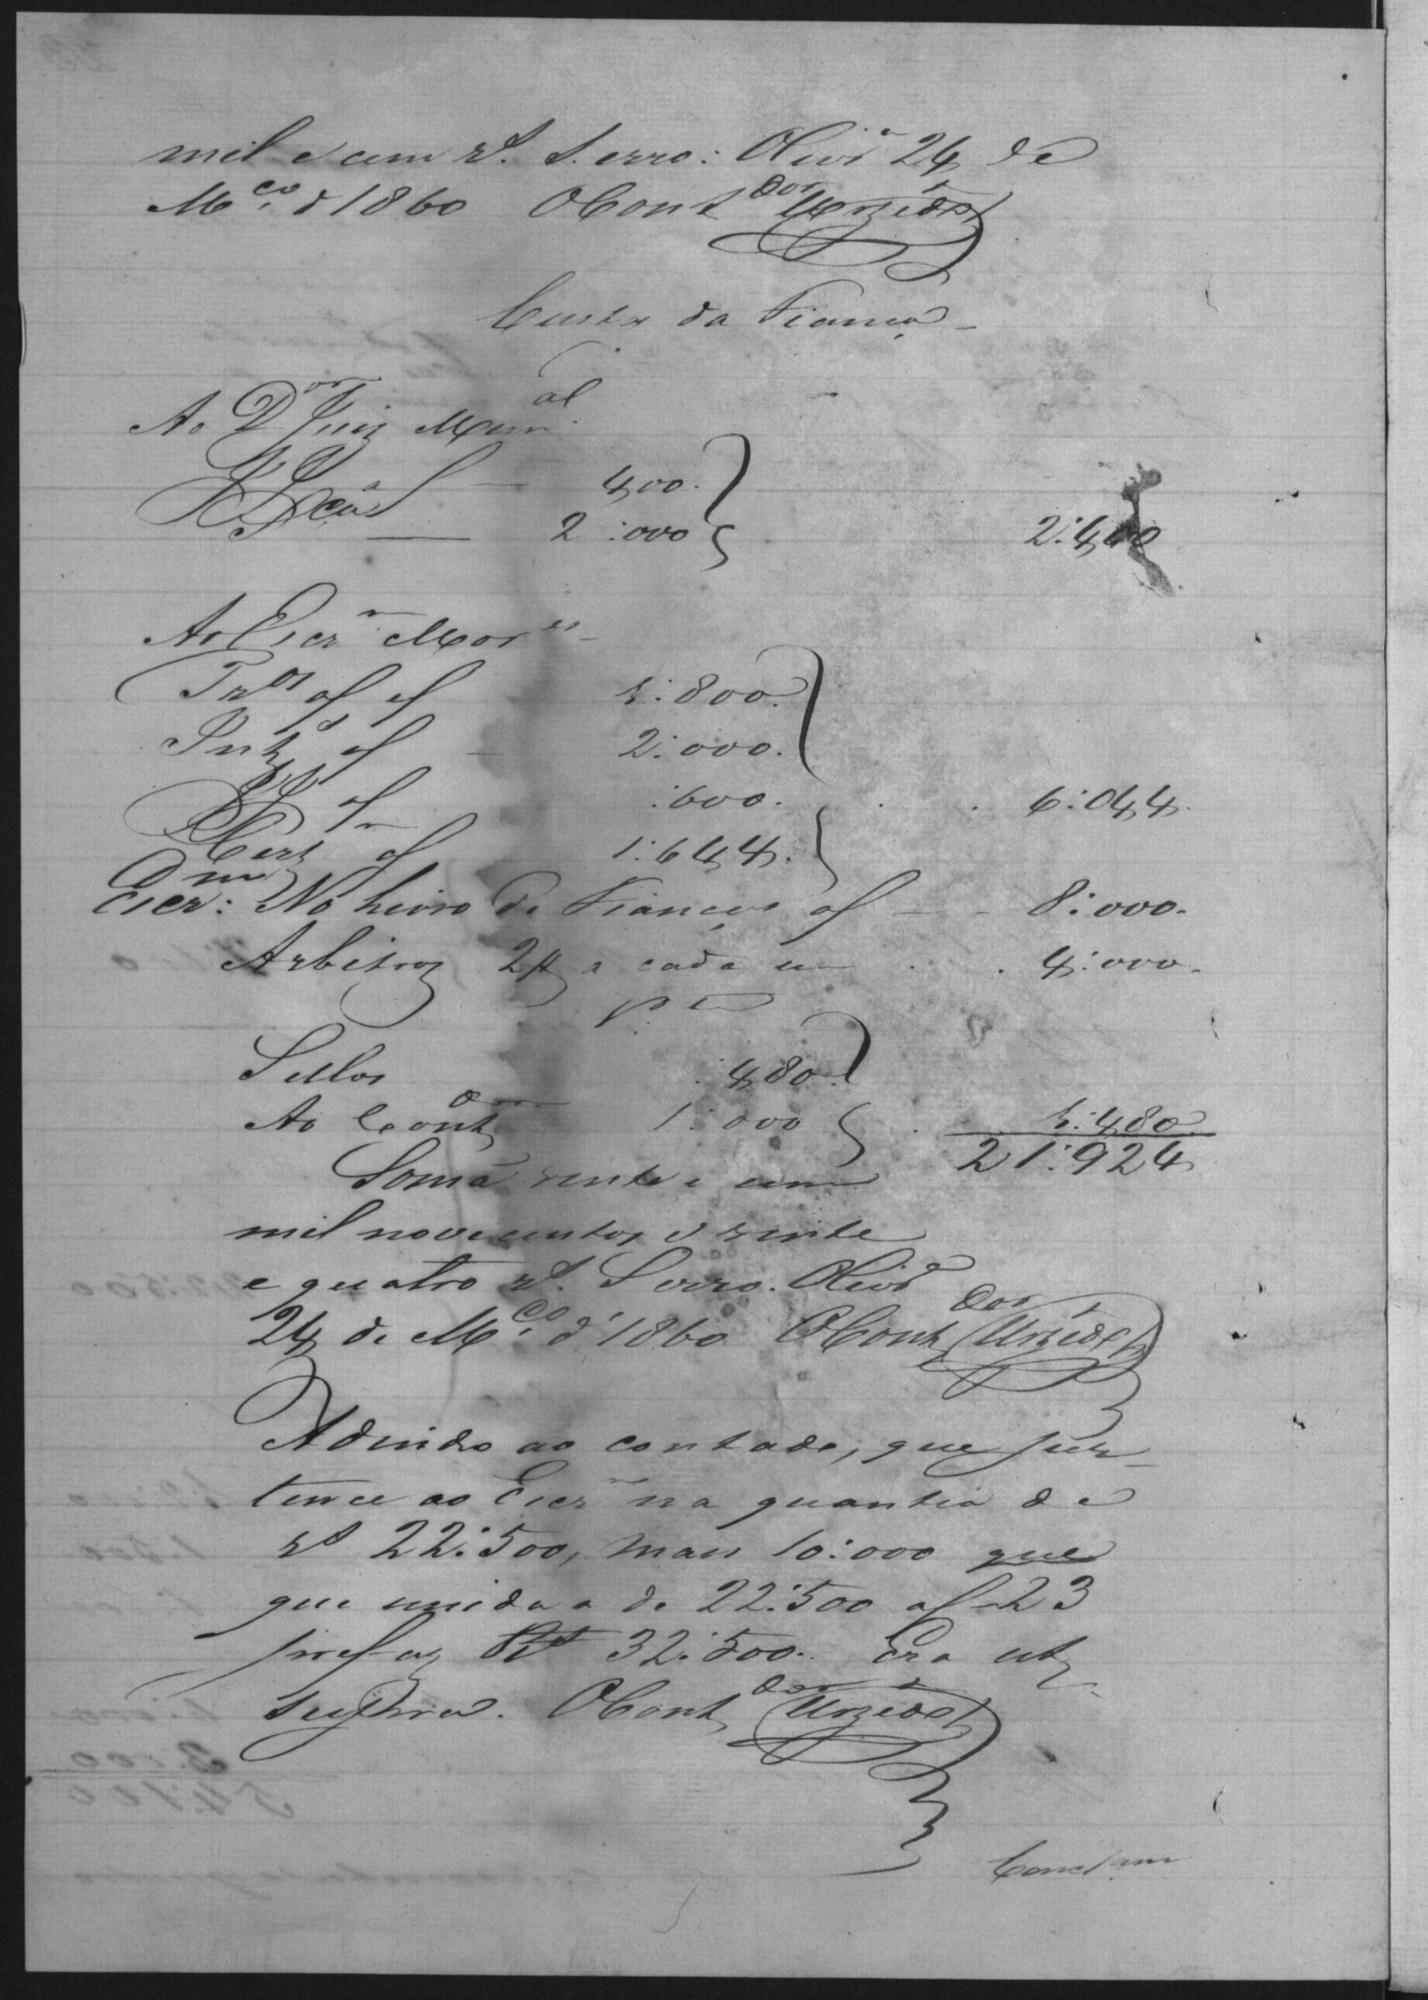 mil e cem rs. S. erro: Olivrª 24 de
Mço. d'1860 O Contdor Urzedo
Custas da Fiança
Ao Dor Juiz Munal.
400.
2:000 2:400
Ao Escrm Mores
Tros af e f 1:800.
2:000.
:600. 6:044.
Certm af 1:644.
Escr: No Livro de Fianças af 8:000.
Arbitros 2$ a cada um 4:000.
Sellos 480.
Ao Contdor 1:000 1:480
21:924
Somã vinte e um
mil novecentos e vinte
e quatro rs. S erro. Olivrª
24 de Mço. d'1860 O Contdor Urzedo
Addindo ao contado, que per-
tence ao Escrm na quantia de
rs 22:500, mais 10:000 que
que unida a de 22:500 af 23
prefaz Rs 32:500. Era ut
supra. O Contdor Urzedo